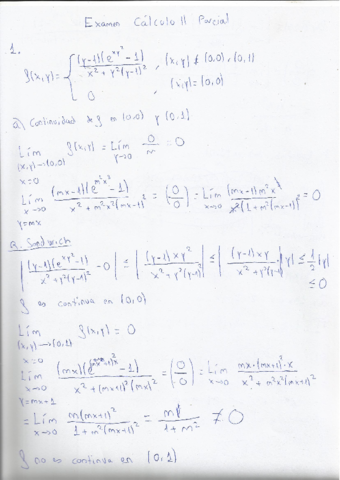 Examen Cálculo II Parcial
1.
f(x,y) = { (y-1)(e^{xy^2} - 1) / x^2 + y^2(y-1)^2 , (x,y) ≠ (0,0), (0,1)
0 , (x,y) = (0,0)
a) Continuidad de f en (0,0) y (0,1)
Lím (x,y)→(0,0) x=0 f(x,y) = Lím y→0 0/m = 0
Lím x→0 y=mx (mx-1)(e^{m^2x^3} - 1) / x^2 + m^2x^2(mx-1)^2 = (0/0) = Lím x→0 (mx-1)m^2x^3 / x^2(1+m^2(mx-1)^2) = 0
a. Sandwich
| (y-1)(e^{xy^2} - 1) / x^2 + y^2(y-1)^2 - 0 | ≤ | (y-1)xy^2 / x^2 + y^2(y-1)^2 | ≤ | (y-1)xy / x^2 + y^2(y-1)^2 | |y| ≤ 1/2 |y|
≤ 0
f es continua en (0,0)
Lím (x,y)→(0,1) x=0 f(x,y) = 0
Lím x→0 y=mx+1 (mx)(e^{x(mx+1)^2} - 1) / x^2 + (mx+1)^2(mx)^2 = (0/0) = Lím x→0 mx·(mx+1)^2·x / x^2 + m^2x^2(mx+1)^2
= Lím x→0 m(mx+1)^2 / 1 + m^2(mx+1)^2 = m / 1+m^2 ≠ 0
f no es continua en (0,1)